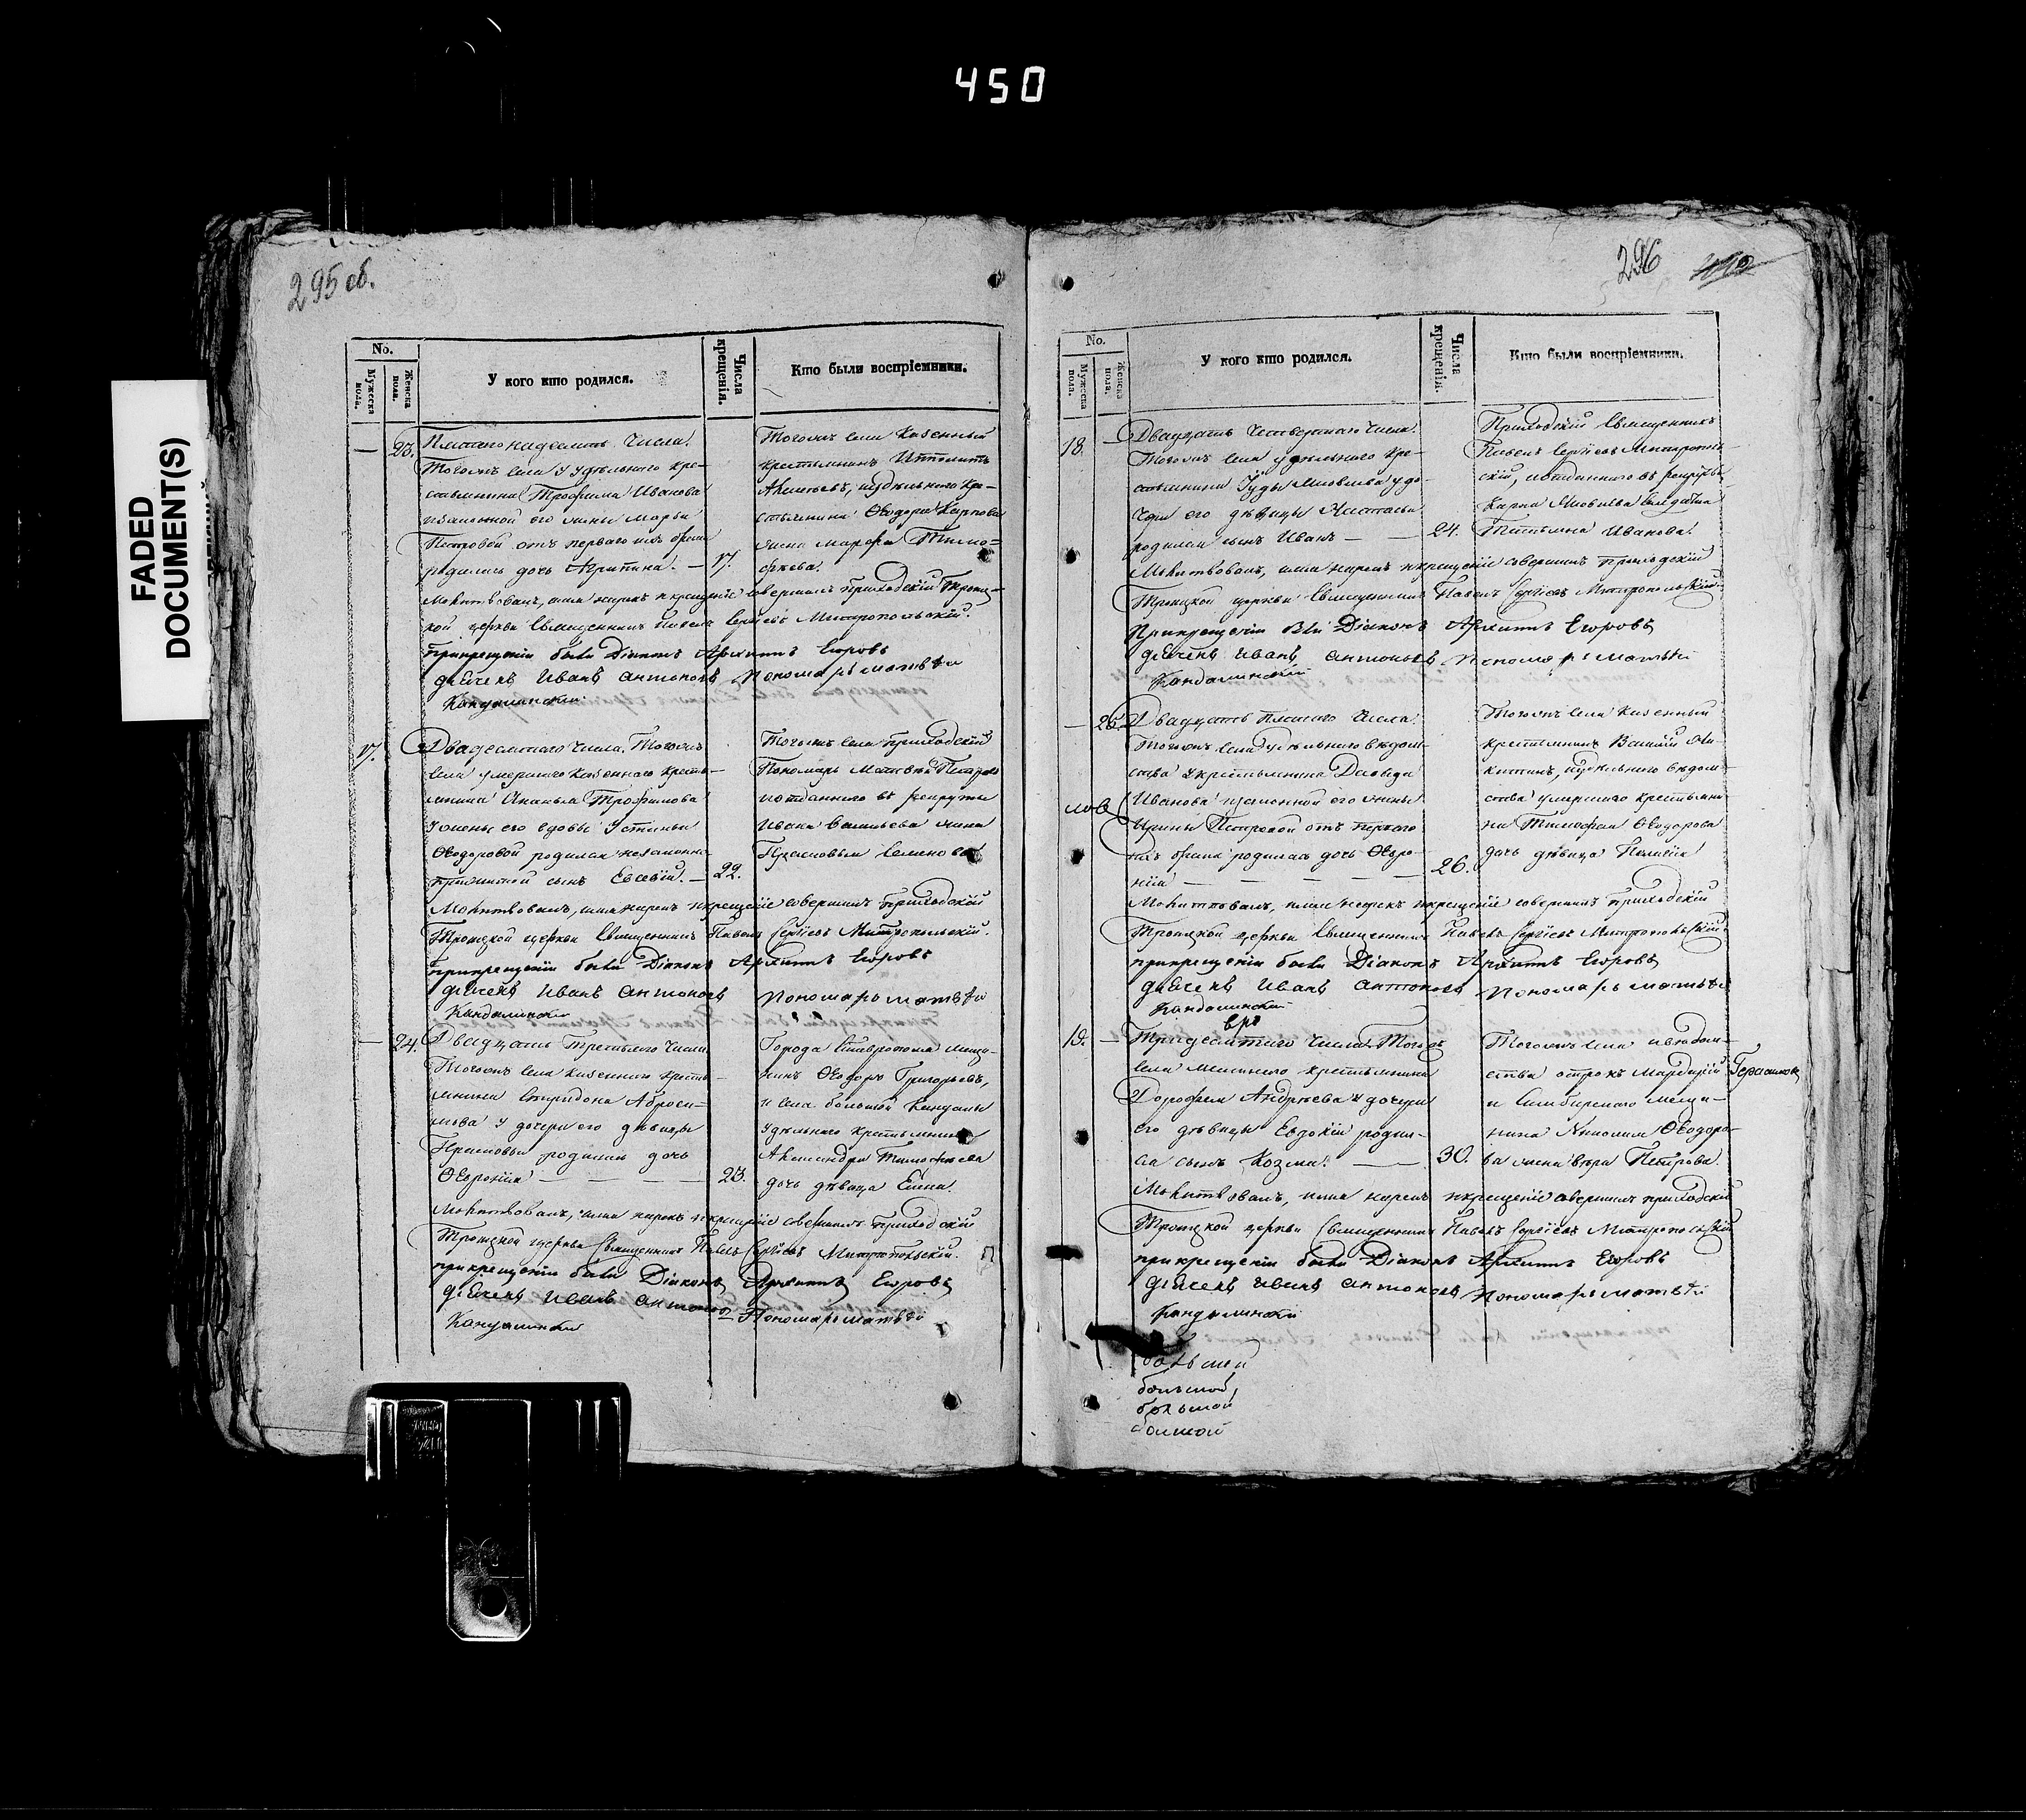 450
FADED
DOCUMENT(S)
295 об.
No.
Мужеска пола.
Женска пола.
У кого кто родился.
Числа крещенія.
Кто были воспріемники.
— 23. Пятагонадесять числа.
Тогожъ села у удѣльнаго кре-
стьянина Трофима Иванова
изаконной его жены Марьи
Петровой отъ перваго ихъ брака
родилась дочь Агрипина. — 17.
Тогожъ села Казенный
крестьянинъ Ипполитъ
иудѣльнаго кре-
стьянина Ѳеодора Карпова
жена Марѳа Тимо-
ѳѣева.
Молитвовалъ, имя нарекъ икрещеніе совершилъ приходскій Троиц-
кой церкви священникъ Павелъ Сергіевъ Митропольскій.
прикрещеніи были Діаконъ Архипъ Егоровъ
дьячекъ Иванъ Антоновъ Пономарь матвѣй
Кандалинский
17. Двадесятаго числа. Тогожъ
села умершаго казеннаго кресть-
янина Ананья Трофимова
у жены его вдовы Устиньи
Ѳеодоровой родился незаконно-
прижитой сынъ Евсевій. — 22.
Тогожъ села приходскій
Пономарь Матвѣй Петровъ
иотданнаго въ рекруты
Ивана Васильева жена
Прасковья Семенова
Молитвовалъ, имя нарекъ икрещеніе совершилъ приходскій
Троицкой церкви священникъ Павелъ Сергіевъ Митропольскій.
прикрещеніи были Діаконъ Архипъ Егоровъ
дьячекъ Иванъ Антоновъ Пономарь матвѣй
Кандалинский
— 24. Двадцать третьяго числа.
Тогожъ села казеннаго кресть-
янина Спиридона Аброси-
мова у дочери его дѣвицы
Прасковьи родилась дочь
Ѳевронія — — — — 23.
Города Ставрополя меща-
нинъ Ѳеодоръ Григорьевъ,
и села большой Кандалы
удѣльнаго крестьянина
Александра Тимоѳѣева
дочь дѣвица Елена.
Молитвовалъ, имя нарекъ икрещеніе совершилъ приходскій
Троицкой церкви Священникъ Павелъ Сергіевъ Митропольскій.
прикрещеніи были Діаконъ Архипъ Егоровъ
дьячекъ Иванъ Антоновъ Пономарь матвѣй
Кандалинский
296
No.
Мужеска пола.
Женска пола.
У кого кто родился.
Числа крещенія.
Кто были воспріемники.
18. — Двадцать четвертаго числа.
Тогожъ села удѣльнаго кре-
стьянина Іуды Яковлева у до-
чери его дѣвицы Настасьи
родился сынъ Иванъ — — 24.
Приходскій священникъ
Павелъ Сергіевъ Митрополь-
скій, иотданнаго въ рекруты
Карпа Яковлева солдатка
Татьяна Иванова.
Молитвовалъ, имя нарекъ икрещеніе совершилъ приходскій
Троицкой церкви священникъ Павелъ Сергіевъ Митропольскій.
Прикрещеніи Были Діаконъ Архипъ Егоровъ
дьячекъ Иванъ антоновъ Пономарь матвѣй
Кандалинский
— 25. Двадцать пятаго числа
Тогожъ села удѣльнаго вѣдом-
ства укрестьянина Давыда
Иванова изаконной его жены
Ирины Петровой отъ перваго
ихъ брака родилась дочь Ѳевро-
нія — — — — 26.
Тогожъ села казенный
крестьянинъ Василій Ни-
китинъ, иудѣльнаго вѣдом-
ства умершаго крестьяни-
на Тимоѳея Ѳеодорова
дочь дѣвица Пелагія
Молитвовалъ, имя нарекъ икрещеніе совершилъ приходскій
Троицкой церкви священникъ Павелъ Сергіевъ Митропольскій
прикрещеніи были Діаконъ Архипъ Егоровъ
дьячекъ Иванъ Антоновъ Пономарь матвѣй
Кандалинский
19. — Тридесятаго числа. Тогожъ
села казеннаго крестьянина
Дорофея Андрѣева у дочери
его дѣвицы Евдокіи родил-
ся сынъ Козма. — — 30.
Тогожъ села
ства отрокъ Мардарій Герасимовъ
и Симбирскаго меща-
нина Николая Ѳеодоро-
ва жена Вѣра Петрова.
Молитвовалъ, имя нарекъ икрещеніе совершилъ приходскій
Троицкой церкви Священникъ Павелъ Сергіевъ Митропольскій
прикрещеніи были Діаконъ Архипъ Егоровъ
дьячекъ Иванъ Антоновъ Пономарь матвѣй
Кандалинский
большой
большой,
большой